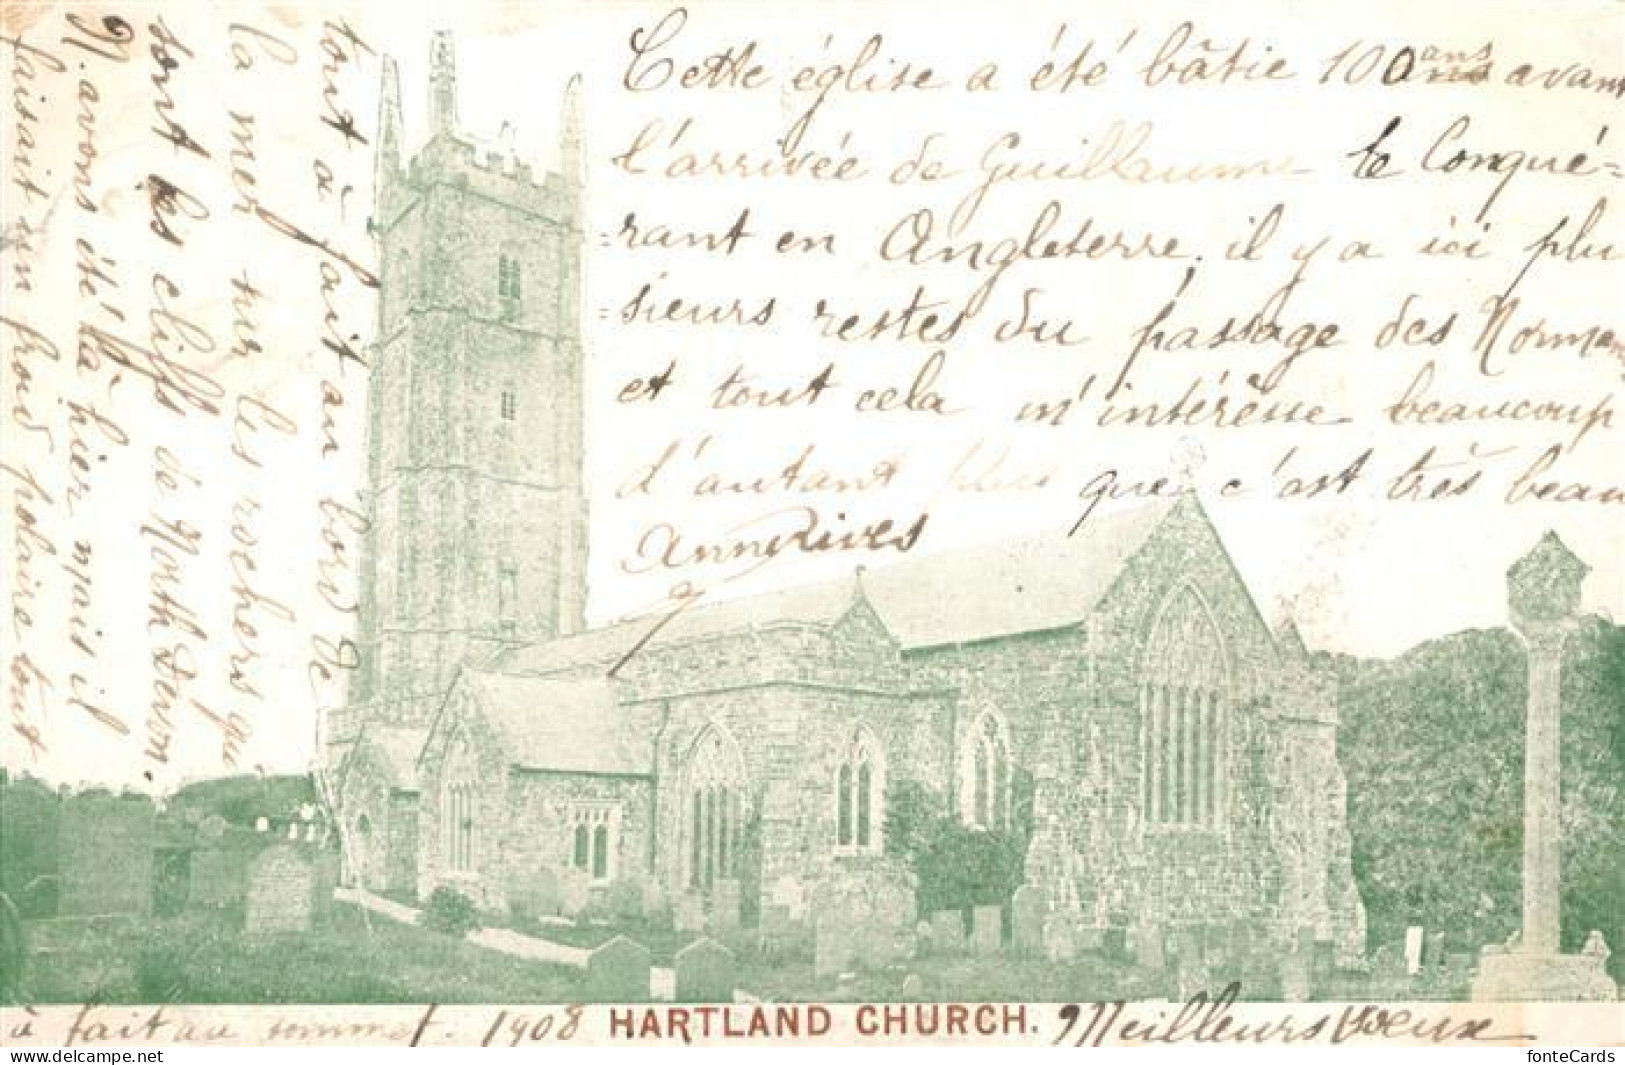 Cette église a été bâtie 100 ans avant
l'arrivée de Guillaume le Conqué-
-rant en Angleterre. il y a ici plu
-sieurs restes du passage des Normans
et tout cela m'intéresse beaucoup
d'autant plus que c'est très beau
Anne Rives
tout à fait au bord de
la mer sur les rochers qui
sont les cliffs de North Devon.
N. avons été là hier mais il
faisait un froid polaire tout
à fait au sommet. 1908
HARTLAND CHURCH.
Meilleurs voeux
www.delcampe.net
fonteCards